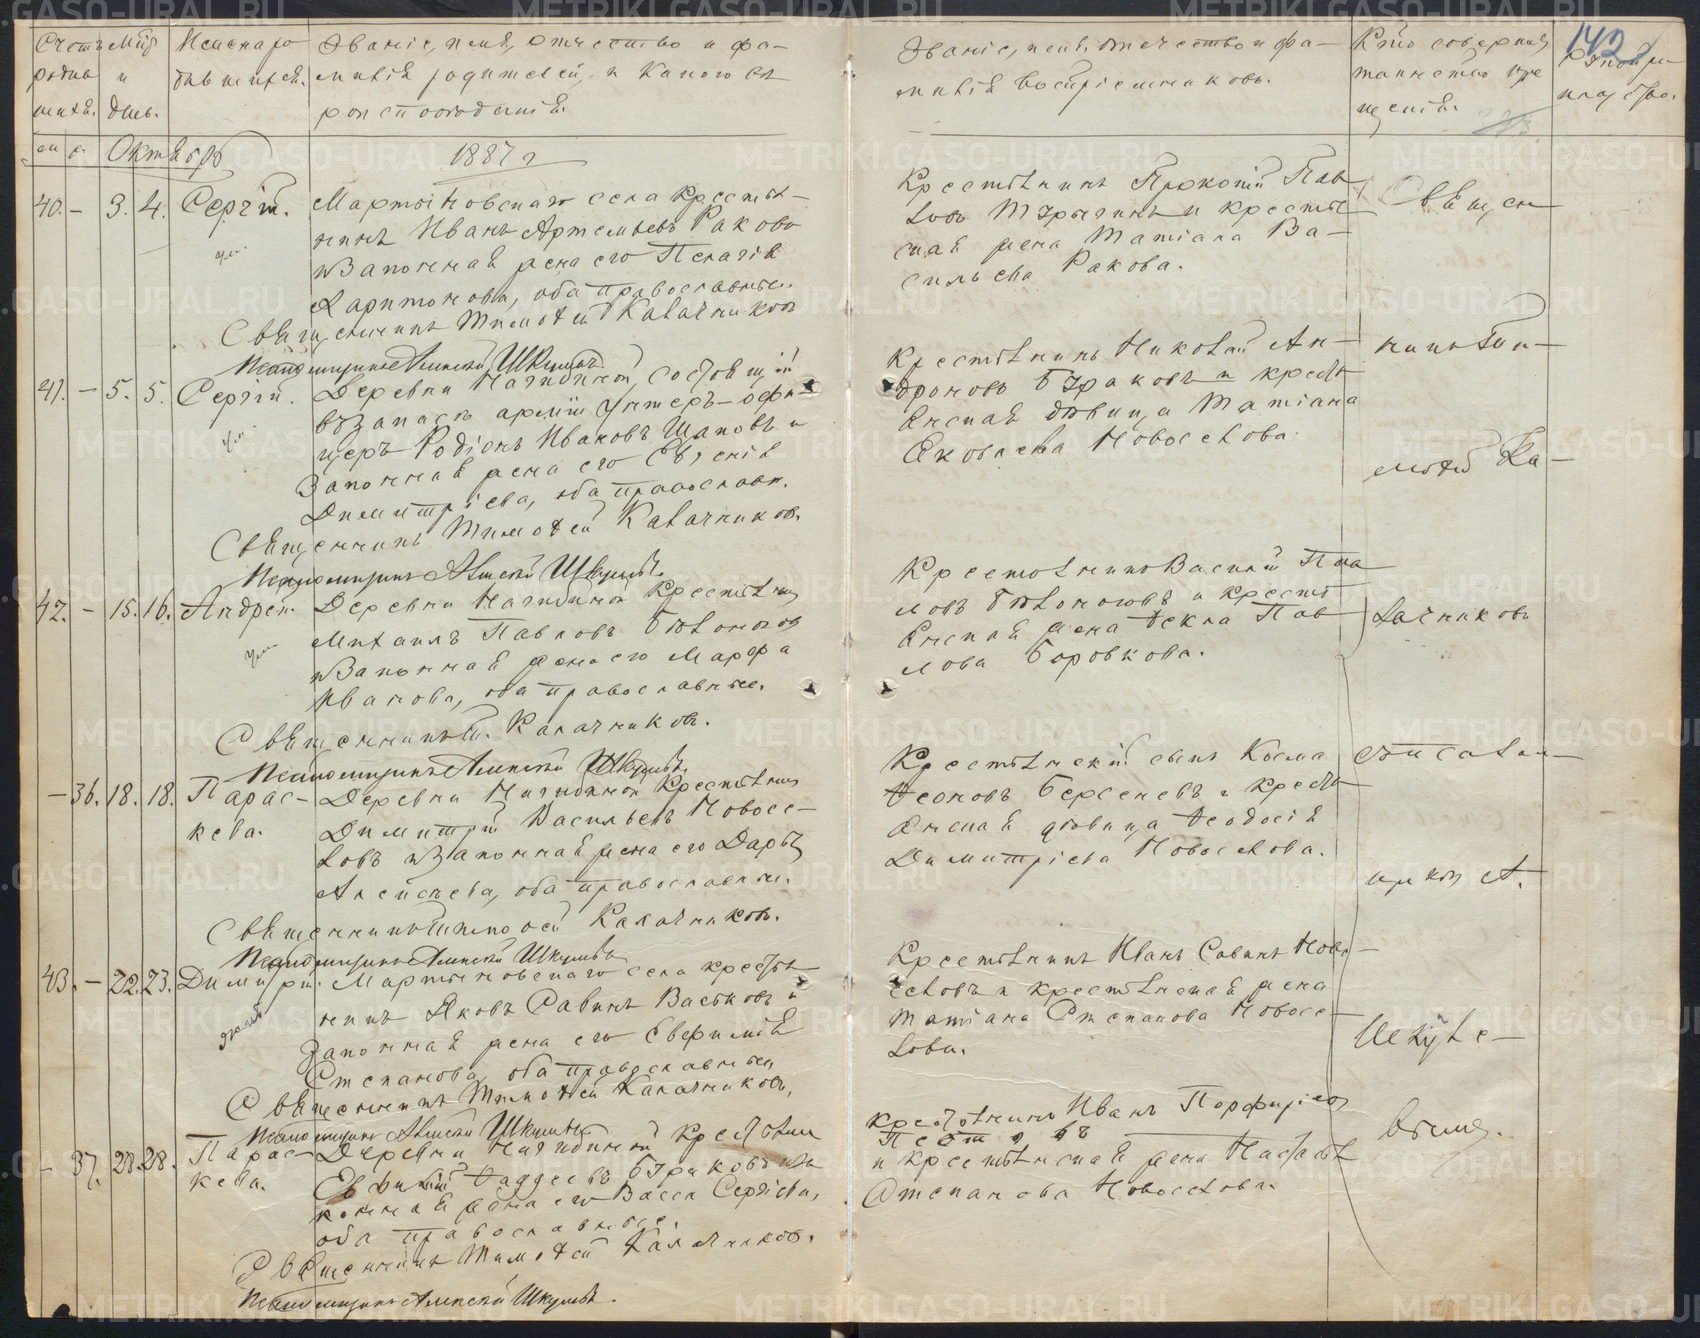 Счетъ
родив
шихся.
Мѣс
и
день.
Имена ро
дившихся.
Званіе, имя, отчество и фа-
милія родителей, и какого вѣ
роисповѣданія.
Званіе, имя, отчество и фа-
милія воспріемниковъ.
Кто совершал
таинство кре
щенія.
142
Октябрь
1887 г
40. - 3. 4. Сергій.
Мартыновскаго села крестья-
нинъ Иванъ Артемьевъ Раковъ
и законная жена его Пелагія
Харитонова, оба православные.
Священникъ Тимоѳей Калачниковъ
Псаломщикъ Алексѣй Шкулевъ
Крестьянинъ Прокопій Пав
ловъ и крестья
ская жена Татіана Ва-
сильева Ракова.
41. - 5. 5. Сергій.
Деревни состоящій
въ запасѣ арміи унтеръ-офи-
церъ Родіонъ Ивановъ и
законная жена его Евгенія
Димитріева, оба православн.
Священникъ Тимоѳей Калачниковъ.
Псаломщикъ Алексѣй Шкулевъ.
Крестьянинъ Николай Ан-
дроновъ Бураковъ и кресть
янская дѣвица Татіана
Яковлева Новоселова.
42. - 15. 16. Андрей.
Деревни крестьянин
Михаилъ Павловъ Бѣлоноговъ
и законная жена его Марѳа
Иванова, оба православные.
Священникъ Т. Калачниковъ.
Псаломщикъ Алексѣй Шкулевъ.
Крестьянинъ Василій Пав
ловъ Бѣлоноговъ и кресть
янская жена Ѳекла Пав
лова Боровкова.
- 36. 18. 18. Парас-
кева.
Деревни крестьянин
Димитрій Васильевъ Новосе-
ловъ и законная жена его Дарья
Алексѣева, оба православные.
Священникъ Тимоѳей Калачниковъ.
Псаломщикъ Алексѣй Шкулевъ
Крестьянскій сынъ Косма
Леоновъ Берсеневъ и кресть
янская дѣвица Ѳеодосія
Димитріева Новоселова.
43. - 22. 23. Димитрій.
Мартыновскаго села крестья
нинъ Яковъ Савинъ Васьковъ и
законная жена его Евфимія
Степанова, оба православные
Священникъ Тимоѳей Калачниковъ,
Псаломщикъ Алексѣй Шкулевъ
Крестьянинъ Иванъ Савинъ Ново
селовъ и крестьянская жена
Татіана Степанова Новосе-
лова.
- 37. 28. 28. Парас-
кева.
Деревни крестьянин
Евфимій Ѳаддеевъ Бураковъ и за
конная жена его Васса Сергіева,
оба православные.
Священникъ Тимоѳей Калачниковъ.
Псаломщикъ Алексѣй Шкулевъ.
Крестьянинъ Иванъ Порфирьев
и крестьянская жена Настасья
Степанова Новоселова.
Священ
никъ Ти-
моѳей Ка-
лачниковъ
съ псалом-
щикомъ А.
Шкуле-
вымъ.
METRIKI.GASO-URAL.RU